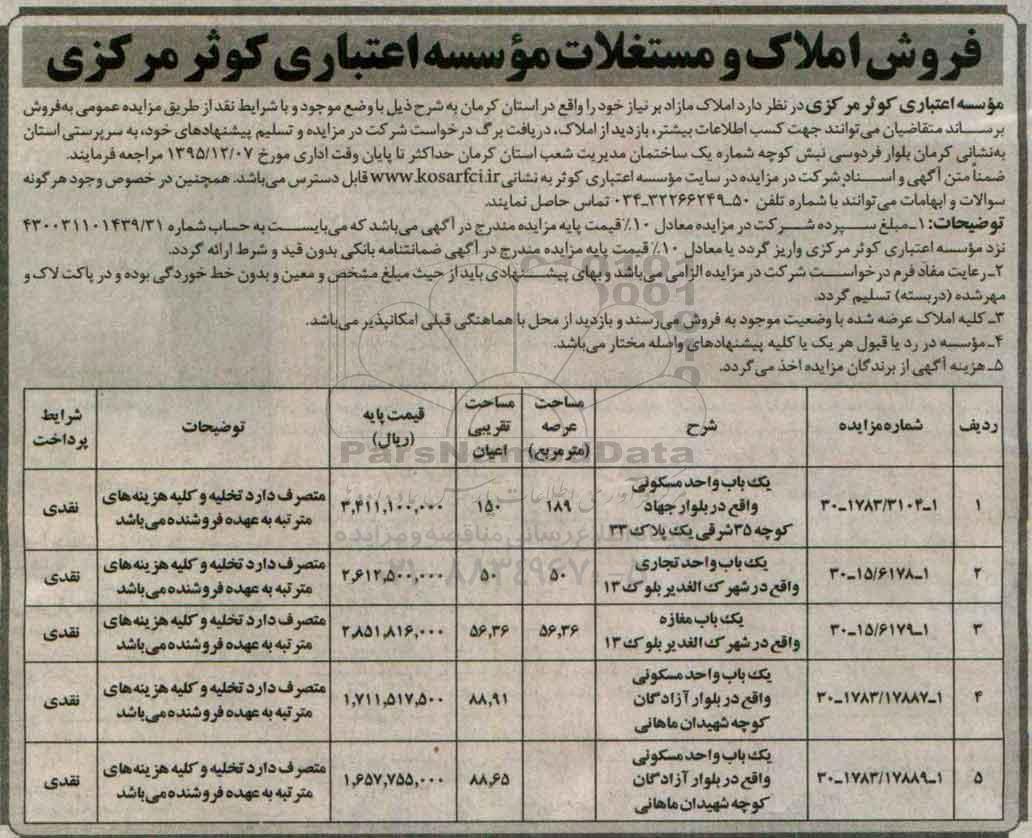 فروش املاک و مستغلات مؤسسه اعتباری کوثر مرکزی
مؤسسه اعتباری کوثر مرکزی در نظر دارد املاک مازاد بر نیاز خود را واقع در استان کرمان به شرح ذیل با وضع موجود و با شرایط نقد از طریق مزایده عمومی به فروش
برساند متقاضیان می‌توانند جهت کسب اطلاعات بیشتر، بازدید از املاک، دریافت برگ درخواست شرکت در مزایده و تسلیم پیشنهادهای خود، به سرپرستی استان
به‌نشانی کرمان بلوار فردوسی نبش کوچه شماره یک ساختمان مدیریت شعب استان کرمان حداکثر تا پایان وقت اداری مورخ ۱۳۹۵/۱۲/۰۷ مراجعه فرمایند.
ضمناً متن آگهی و اسناد شرکت در مزایده در سایت مؤسسه اعتباری کوثر به نشانی www.kosarfci.ir قابل دسترس می‌باشد. همچنین در خصوص وجود هرگونه
سوالات و ابهامات می‌توانند با شماره تلفن ۵۰ـ۳۲۲۶۶۲۴۹ـ۰۳۴ تماس حاصل نمایند.
توضیحات: ۱ـ مبلغ سپرده شرکت در مزایده معادل ۱۰٪ قیمت پایه مزایده مندرج در آگهی می‌باشد که می‌بایست به حساب شماره ۴۳۰۰۳۱۱۰۱۴۳۹/۳۱
نزد مؤسسه اعتباری کوثر مرکزی واریز گردد یا معادل ۱۰٪ قیمت پایه مزایده مندرج در آگهی ضمانتنامه بانکی بدون قید و شرط ارائه گردد.
۲ـ رعایت مفاد فرم درخواست شرکت در مزایده الزامی می‌باشد و بهای پیشنهادی باید از حیث مبلغ مشخص و معین و بدون خط خوردگی بوده و در پاکت لاک و
مهرشده (دربسته) تسلیم گردد.
۳ـ کلیه املاک عرضه شده با وضعیت موجود به فروش می‌رسند و بازدید از محل با هماهنگی قبلی امکانپذیر می‌باشد.
۴ـ مؤسسه در رد یا قبول هر یک یا کلیه پیشنهادهای واصله مختار می‌باشد.
۵ـ هزینه آگهی از برندگان مزایده اخذ می‌گردد.
ردیف شماره مزایده شرح مساحت عرصه (مترمربع) مساحت تقریبی اعیان قیمت پایه (ریال) توضیحات شرایط پرداخت
۱ ۱ـ۱۷۸۳/۳۱۰۴ـ۳۰ یک باب واحد مسکونی واقع در بلوار جهاد کوچه ۳۵ شرقی یک پلاک ۳۳ ۱۸۹ ۱۵۰ ۳,۴۱۱,۱۰۰,۰۰۰ متصرف دارد تخلیه و کلیه هزینه‌های مترتبه به عهده فروشنده می‌باشد نقدی
۲ ۱ـ۱۵/۶۱۷۸ـ۳۰ یک باب واحد تجاری واقع در شهرک الغدیر بلوک ۱۳ ۵۰ ۵۰ ۲,۶۱۲,۵۰۰,۰۰۰ متصرف دارد تخلیه و کلیه هزینه‌های مترتبه به عهده فروشنده می‌باشد نقدی
۳ ۱ـ۱۵/۶۱۷۹ـ۳۰ یک باب مغازه واقع در شهرک الغدیر بلوک ۱۳ ۵۶,۳۶ ۵۶,۳۶ ۲,۸۵۱,۸۱۶,۰۰۰ متصرف دارد تخلیه و کلیه هزینه‌های مترتبه به عهده فروشنده می‌باشد نقدی
۴ ۱ـ۱۷۸۳/۱۷۸۸۷ـ۳۰ یک باب واحد مسکونی واقع در بلوار آزادگان کوچه شهیدان ماهانی ۸۸,۹۱ ۱,۷۱۱,۵۱۷,۵۰۰ متصرف دارد تخلیه و کلیه هزینه‌های مترتبه به عهده فروشنده می‌باشد نقدی
۵ ۱ـ۱۷۸۳/۱۷۸۸۹ـ۳۰ یک باب واحد مسکونی واقع در بلوار آزادگان کوچه شهیدان ماهانی ۸۸,۶۵ ۱,۶۵۷,۷۵۵,۰۰۰ متصرف دارد تخلیه و کلیه هزینه‌های مترتبه به عهده فروشنده می‌باشد نقدی
ParsNamadData